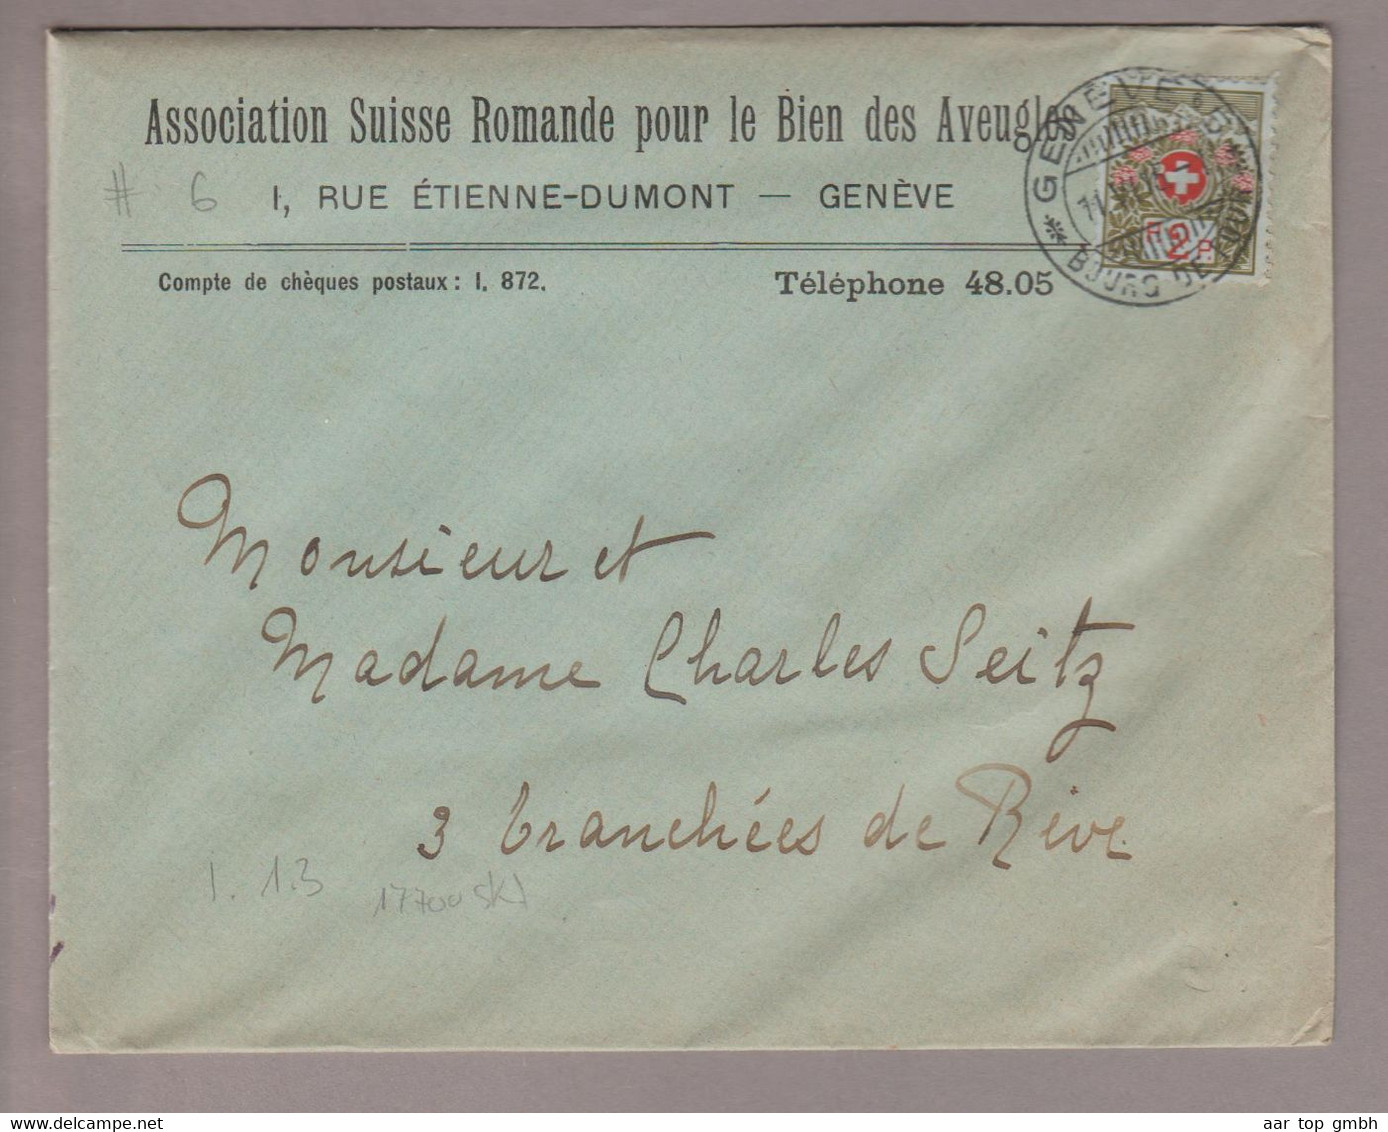 Association Suisse Romande pour le Bien des Aveugles
# 6
1, RUE ÉTIENNE-DUMONT — GENÈVE
Compte de chèques postaux : I. 872.
Téléphone 48.05
GENÈVE
BOURG DE FOUR
2
Monsieur et
Madame Charles Seitz
3 tranchées de Rive
1. 1.3
aar top gmbh
www.delcampe.net